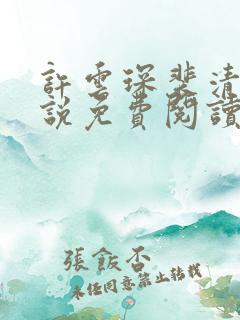 許雲琛裴清
說免費閱讀
張飯否
未經同意禁止轉載